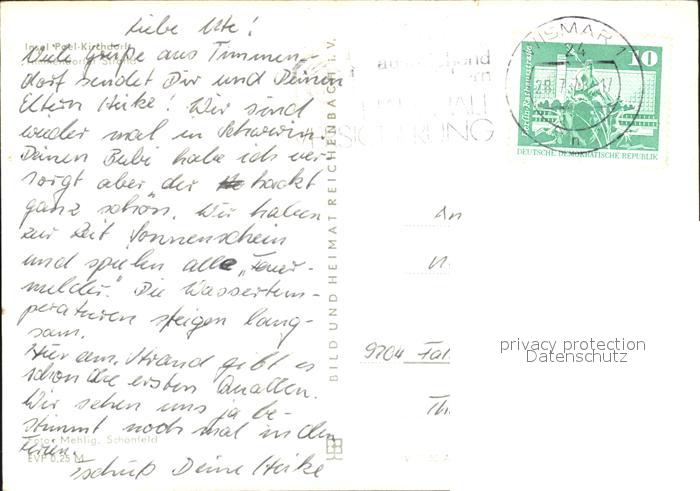 Liebe Ute!
Insel Poel-Kirchdorf
Viele Grüße aus Timmen-
dorf sendet Dir und Deinen
Eltern Heike! Wir sind
wieder mal in Schwerin.
Deinen Bubi habe ich ver-
sorgt aber der hackt
ganz schön. Wir haben
zur Zeit Sonnenschein
und spielen alle „Feuer-
melder." Die Wassertem-
peraturen steigen lang-
sam.
Hier am Strand gibt es
schon die ersten Quallen.
Wir sehen uns ja be-
stimmt noch mal in den
Ferien.
Tschüß Deine Heike
Foto: Mehlig, Schönfeld
EVP 0,25 M
BILD UND HEIMAT REICHENBACH i. V.
WISMAR 1
24
28.7.
n
VERSICHERUNG
10
Berlin-Rathausstraße
DEUTSCHE DEMOKRATISCHE REPUBLIK
An
9704 Fal
privacy protection
Datenschutz